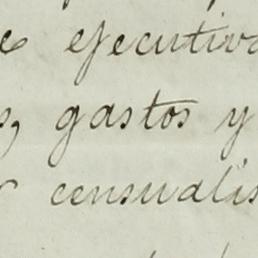 e ejecutiva
s, gastos y
censualis